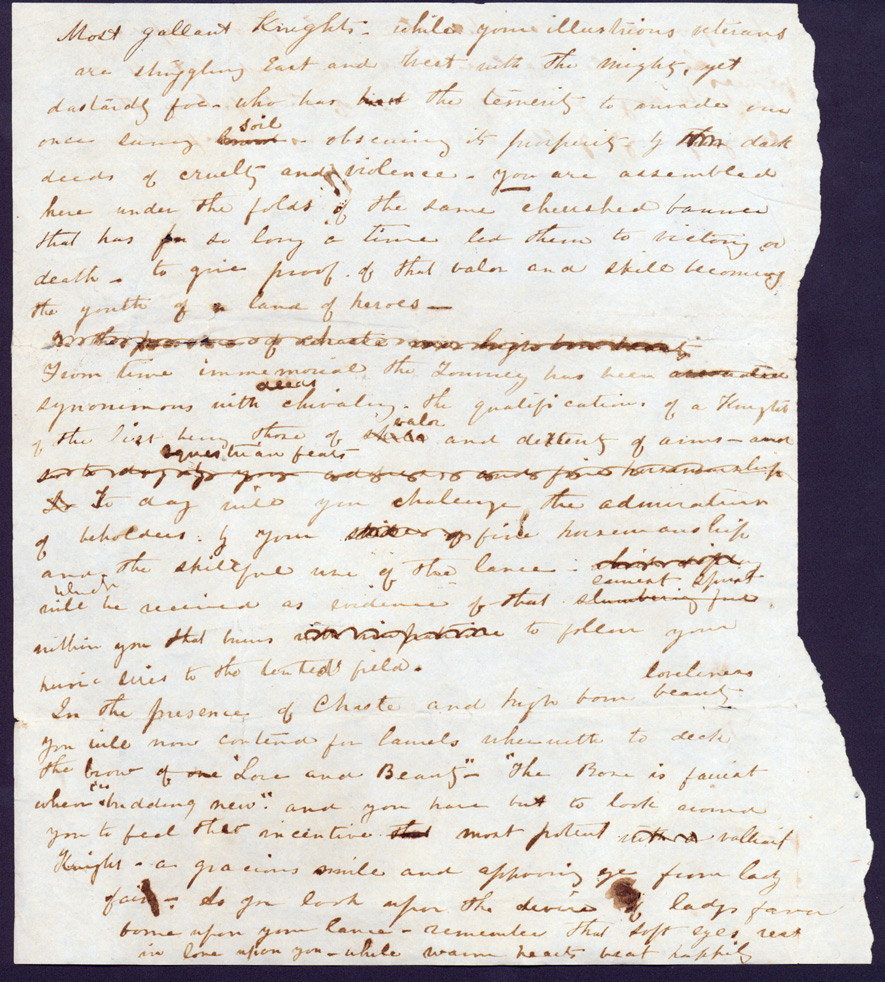 Most gallant Knights - while your illustrious veterans
are struggling East and West with the mighty, yet
dastardly foe - who has had the temerity to invade our
once sunny soil - obscuring its prosperity by their dark
deeds of cruelty and violence - you are assembled
here under the folds of the same cherished banner
that has for so long a time led them to victory or
death - to give proof of that valor and skill becoming
the youth of a land of heroes -
In the presence of chaste and high born beauty
From time immemorial, the Tourney has been associated
deeds
synonimous with chivalry - the qualifications of a Knight
valor
of the list being those of skill and dexterity of arms - and
equestrian feats
and fine horsemanship
To day will you challenge the admiration
of beholders: by your fine horsemanship
and the skillful use of the lance -
which
ardent spirit
will be received as evidence of that slumbering fire
within you that burns to follow your
heroic sires to the tented field.
loveliness
In the presence of Chaste and high born beauty
you will now contend for laurels wherewith to deck
the brow of one "Love and Beauty" - "The Rose is fairest
when 'tis budding new": and you have but to look around
you to feel that incentive that most potent with a valiant
Knight - a gracious smile and approving eye from lady
fair - As you look upon the device of ladys favor
borne upon your lance - remember that soft eyes rest
in love upon you - while warm hearts beat happily